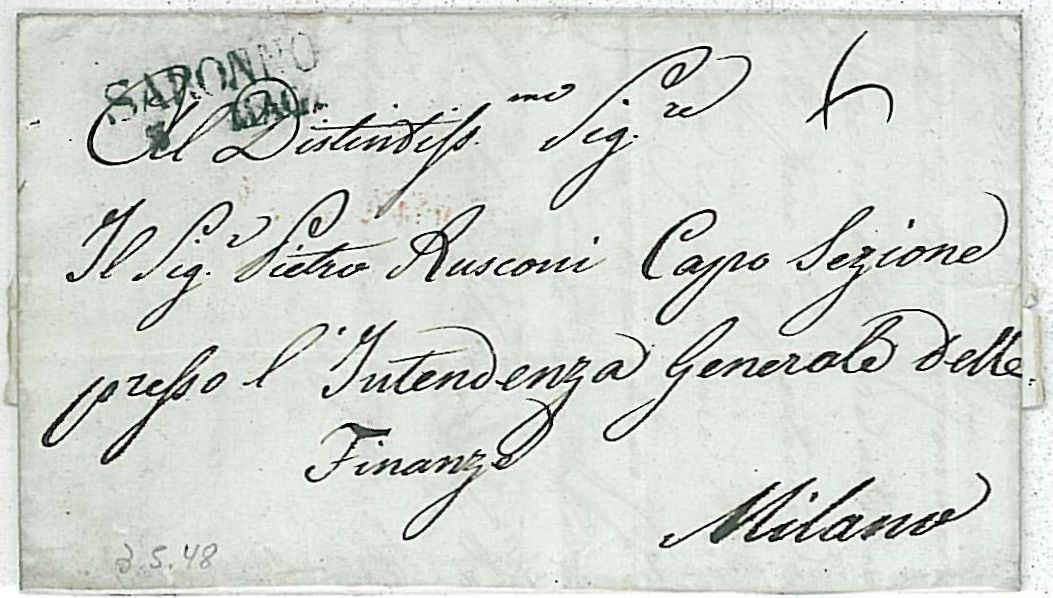 SARONNO
MAG.
Al Distintiss.mo Sig.re
Il Sig.r Pietro Rusconi Capo Sezione
presso l'Intendenza Generale delle
Finanze
Milano
3.5.48